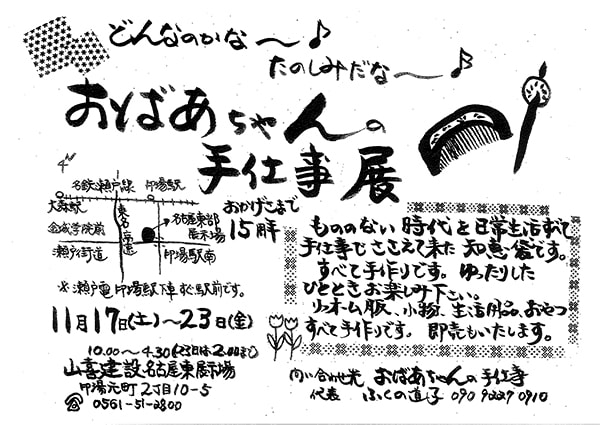 どんなのかな〜♪
たのしみだな〜♪
おばあちゃんの
手仕事展
おかげさまで
15周年
名鉄瀬戸線 印場駅
大森駅
金城学院前
東名高速
名古屋東部
展示場
瀬戸街道
印場駅南
※瀬戸電印場駅下車すぐ駅前です。
11月17日(土)〜23日(金)
10.00〜4.30(23日は2.00まで)
山喜建設名古屋東展示場
印場元町2丁目10-5
☎ 0561-51-2800
もののない時代を日常生活すべて
手仕事でささえて来た知恵袋です。
すべて手作りです。ゆったりした
ひとときお楽しみ下さい。
リフォーム服、小物、生活用品、おやつ
すべて手作りです。即売もいたします。
問い合わせ先 おばあちゃんの手仕事
代表 ふくの道子 090 9227 0910